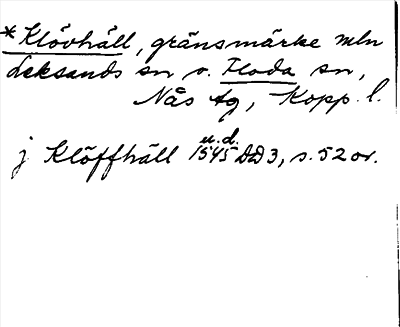 *Klövhäll, gränsmärke mln
Leksands sn o. Floda sn,
Nås tg, Kopp. l.
u.d.
j Klöffhäll 1545 DD3, s. 52 or.